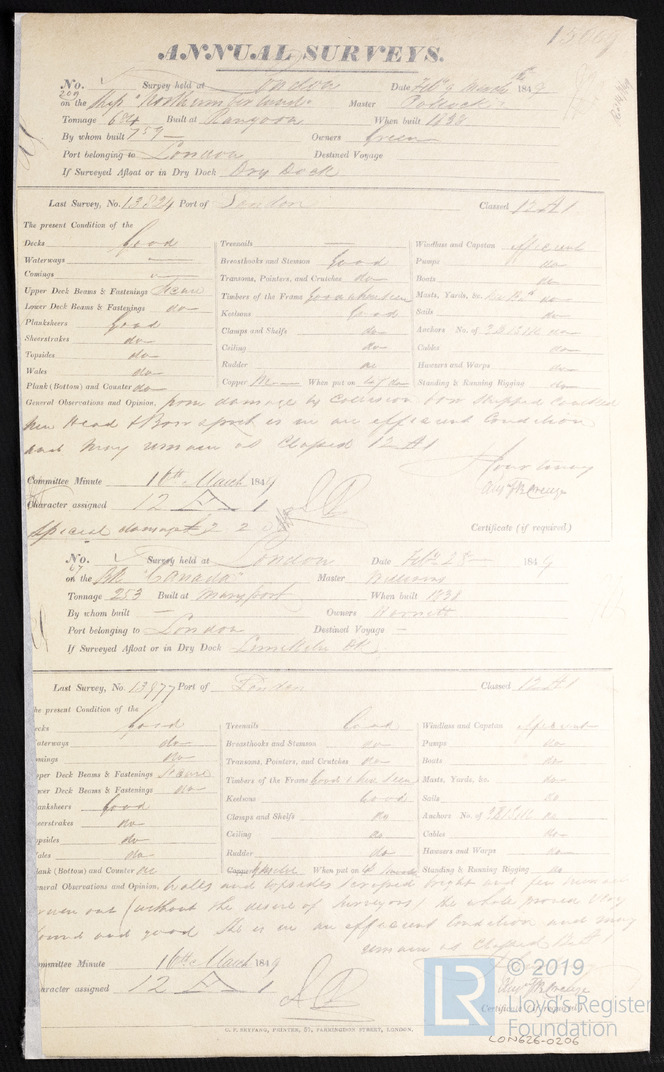 15669
ANNUAL SURVEYS.
No. 209 Survey held at London Date Feb 9 March 1849
on the Ship "Northumberland" Master
Tonnage Built at Rangoon When built 1838
By whom built 759 — Owners Green
Port belonging to London Destined Voyage
If Surveyed Afloat or in Dry Dock Dry Dock
Last Survey, No. 13824 Port of London Classed 12 A 1
The present Condition of the
Decks Good Treenails — Windlass and Capstan Efficient
Waterways — Breasthooks and Stemson Good Pumps do
Comings — Transoms, Pointers, and Crutches do Boats do
Upper Deck Beams & Fastenings Timbers of the Frame Good where seen Masts, Yards, &c. do
Lower Deck Beams & Fastenings do Keelsons Good Sails do
Planksheers Good Clamps and Shelfs do Anchors No. of
Sheerstrakes do Ceiling do Cables do
Topsides do Rudder do Hawsers and Warps do
Wales do Copper When put on Standing & Running Rigging do
Plank (Bottom) and Counter do
General Observations and Opinion, from damage by Collision bow stripped caulked
new Head & Bowsprit is in an efficient Condition
and may remain as Classed 12 A 1
Committee Minute 16th March 1849
Character assigned 12 A 1
Special damage £2 2 0
Certificate (if required)
No. 67 Survey held at London Date Feby 28 — 1849
on the Bk "Canada" Master Williams
Tonnage 253 Built at Maryport When built 1838
By whom built — Owners Hornett
Port belonging to London Destined Voyage —
If Surveyed Afloat or in Dry Dock Limekiln Dk
Last Survey, No. 13977 Port of London Classed 12 A 1
he present Condition of the
ecks Good Treenails Good Windlass and Capstan Efficient
aterways do Breasthooks and Stemson do Pumps do
mings do Transoms, Pointers, and Crutches do Boats do
pper Deck Beams & Fastenings Timbers of the Frame Good where seen Masts, Yards, &c. do
wer Deck Beams & Fastenings do Keelsons Good Sails do
anksheers Good Clamps and Shelfs do Anchors No. of
eerstrakes do Ceiling do Cables do
opsides do Rudder do Hawsers and Warps do
ales do Copper When put on Standing & Running Rigging do
lank (Bottom) and Counter do
eneral Observations and Opinion, Wales and topsides scraped bright and few treenails
driven out (without the desire of Surveyors) the whole proved very
sound and good She is in an efficient Condition and may
remain as Classed 12 A 1
ommittee Minute 16th March 1849
haracter assigned 12 A 1
Certificate (if required)
G. F. SEYFANG, PRINTER, 57, FARRINGDON STREET, LONDON.
LR © 2019
Lloyd's Register
Foundation
LON626-0206